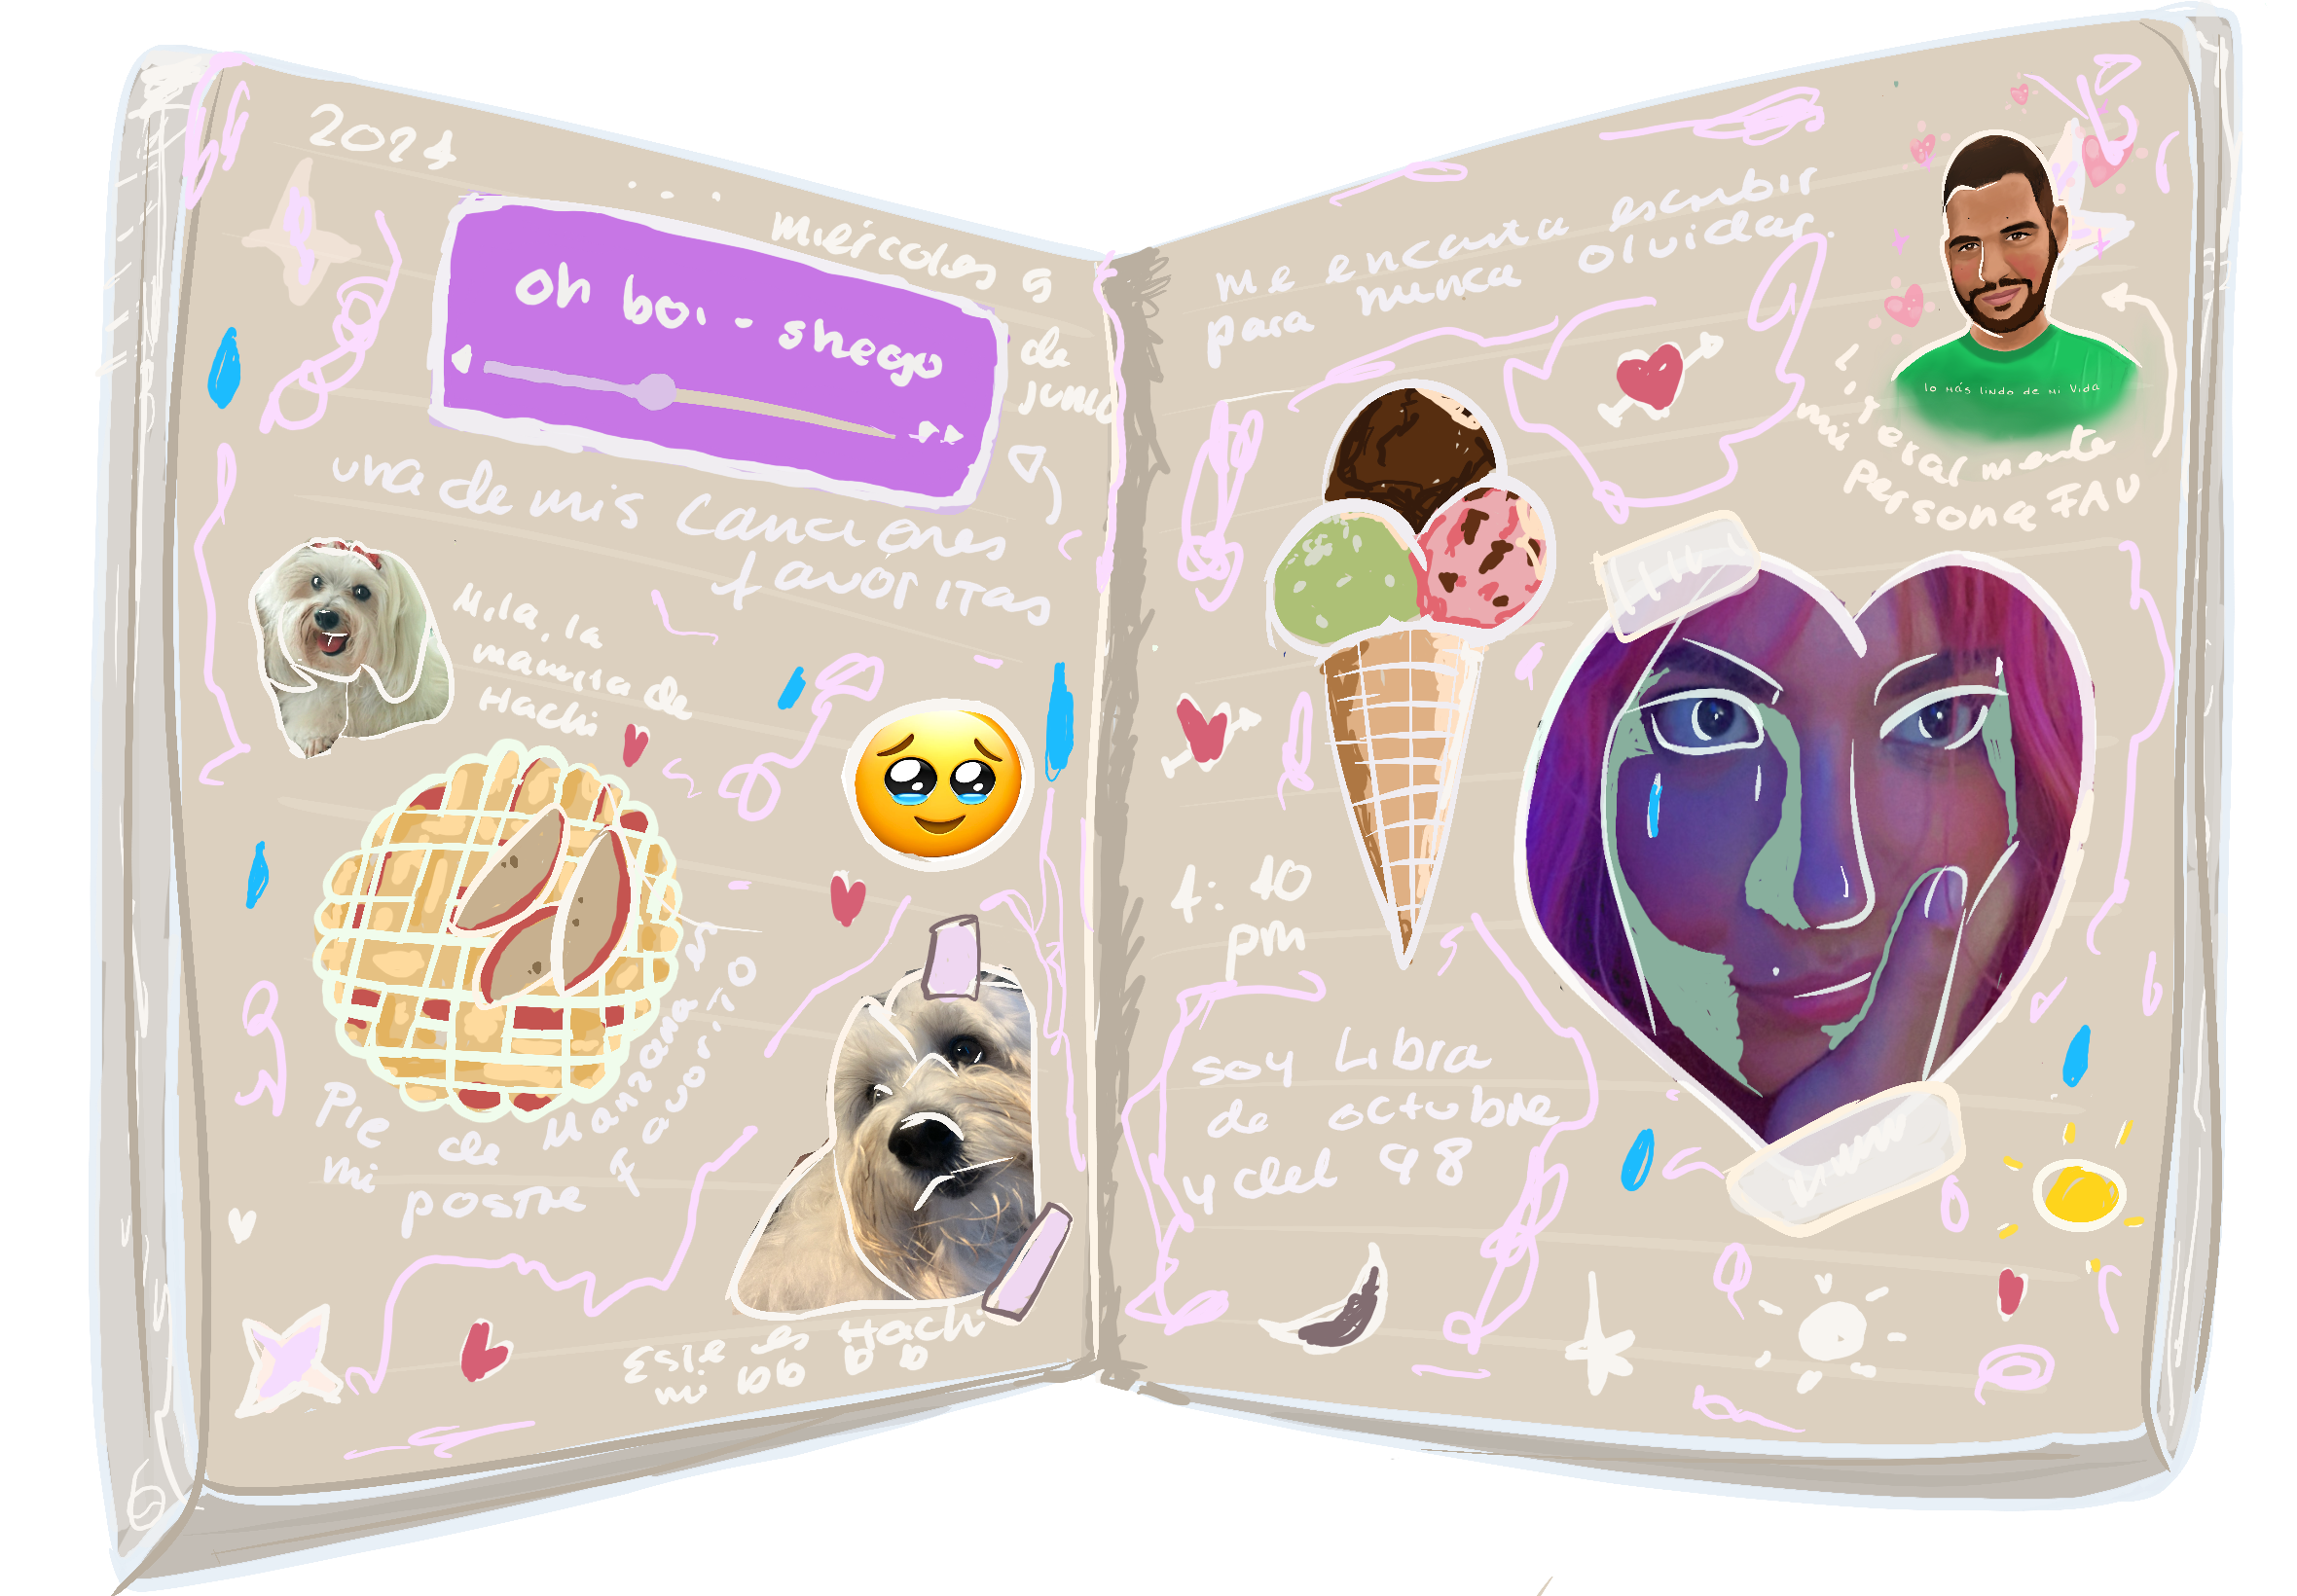 2024
miércoles 5
de
junio
oh boi - shego
una de mis canciones
favoritas
Mila, la
mamita de
Hachi
Pie de manzana
mi postre favorito
Este es Hachi
mi bb
me encanta escribir
para nunca olvidar.
lo más lindo de mi vida
Literalmente
mi persona FAV
1:10
pm
soy Libra
de octubre
y del 98